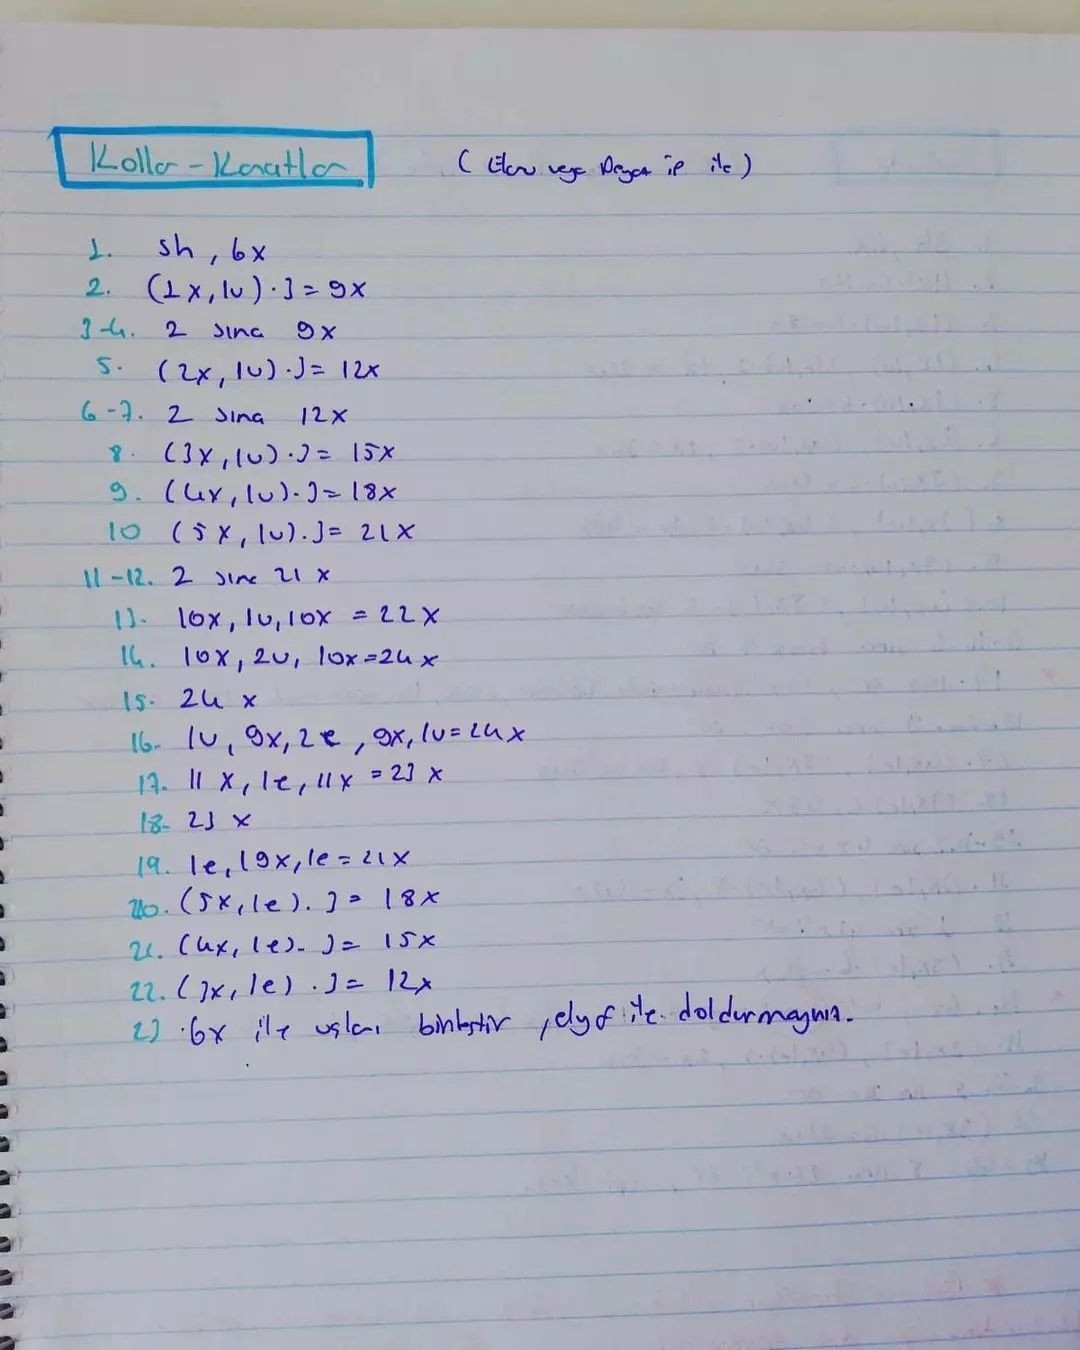 Kollar - Kanatlar
( Ekru veya Beyaz ip ile )
1. sh, 6x
2. (1x, 1v) · 3 = 9x
3-4. 2 sıra 9x
5. (2x, 1v) · 3 = 12x
6-7. 2 sıra 12x
8. (3x, 1v) · 3 = 15x
9. (4x, 1v) · 3 = 18x
10 (5x, 1v) · 3 = 21x
11-12. 2 sıra 21x
13. 10x, 1v, 10x = 22x
14. 10x, 2v, 10x = 24x
15. 24 x
16. 1v, 9x, 2e, 9x, 1v = 24x
17. 11x, 1e, 11x = 23x
18. 23 x
19. 1e, 19x, 1e = 21x
20. (5x, 1e) · 3 = 18x
21. (4x, 1e) · 3 = 15x
22. (3x, 1e) · 3 = 12x
23 · 6x ile uçları birleştir, elyaf ile doldurmayınız.